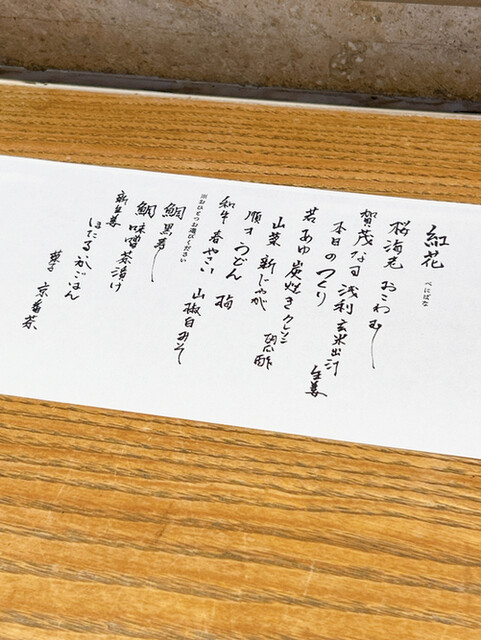 紅花
べにばな
桜海老 おこわむし
賀茂なす 浅利 玄米出汁
本日のつくり
若あゆ 炭焼き クレソン 生姜
山菜 新じゃが 胡瓜酢
順才 うどん 梅
和牛 春やさい 山椒白みそ
※おひとつお選びください
鯛黒寿し
鯛味噌茶漬け
新生姜 ほたるいかごはん
菓子 京番茶